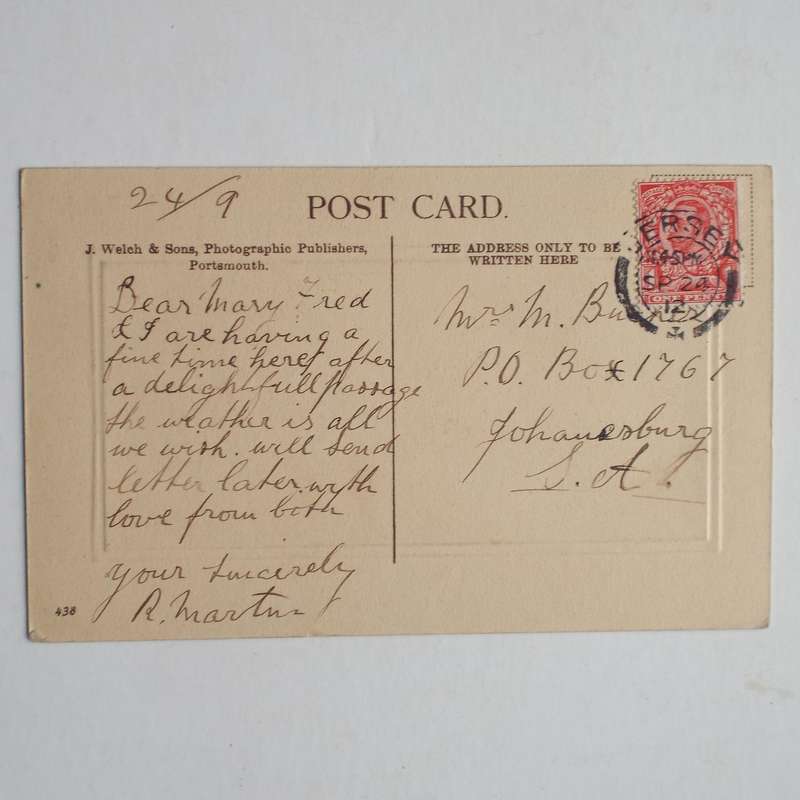 24/9
POST CARD.
J. Welch & Sons, Photographic Publishers,
Portsmouth.
Dear Mary Fred
& I are having a
fine time here after
a delightfull passage
the weather is all
we wish. will send
letter later with
love from both
your sincerely
R. Martin
438
THE ADDRESS ONLY TO BE
WRITTEN HERE
Mrs M.
P.O. Box 1767
Johanesburg
S.A.
JERSEY
SP 24
12
ONE PENNY